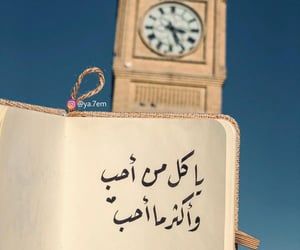 @ya.7em
يا كل من أحب
وأكثر ما أحب